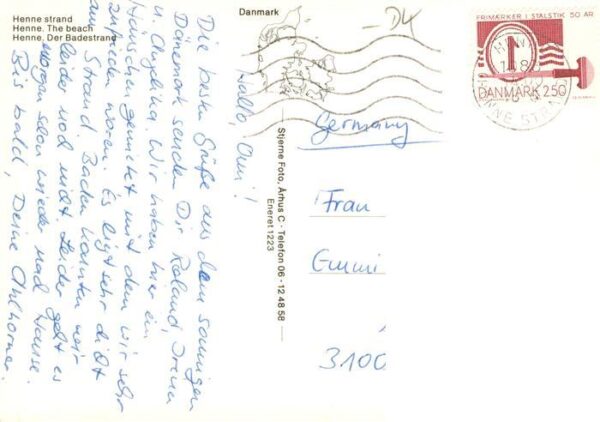 Henne strand
Henne. The beach
Henne. Der Badestrand
Danmark
- D4
FRIMÆRKER I STÅLSTIK 50 ÅR
1
DANMARK 250
HENNE STRAND
Stjerne Foto, Århus C - Telefon 06 - 12 48 58
Eneret 1223
Hallo, Omi!
Die besten Grüße aus dem sonnigen
Dänemark senden Dir Roland, Irena
u. Angelika. Wir haben hier ein
Häuschen gemietet mit dem wir sehr
zufrieden waren. Es liegt sehr dicht
am Strand. Baden konnten wir
leider noch nicht. Leider geht es
Morgen schon wieder nach Hause.
Bis bald, Deine
Germany
Frau
Emmi
3100